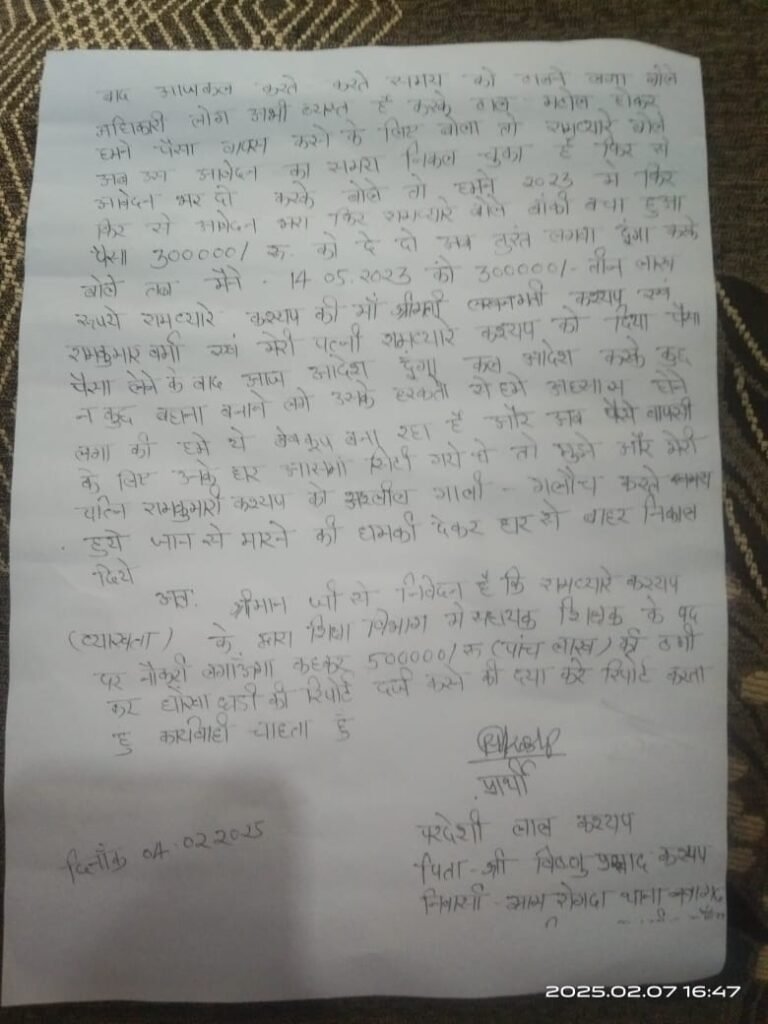 बाद आजकल करते करते समय को टालने लगा बोले
अधिकारी लोग अभी व्यस्त है करके टाल मटोल होकर
हमने पैसा वापस करने के लिए बोला तो रामप्यारे बोले
अब उस आवेदन का समय निकल चुका है फिर से
आवेदन भर दो करके बोले तो हमने 2023 में फिर
फिर से आवेदन भरा फिर रामप्यारे बोले बांकी बचा हुआ
पैसा 300000/ रु. को दे दो अब तुरंत लगवा दुंगा करके
बोले तब मैने . 14.05.2023 को 300000/- तीन लाख
रूपये रामप्यारे कश्यप की माँ श्रीमती कश्यप एवं
रामकुमार वर्मा एवं मेरी पत्नी रामप्यारे कश्यप को दिया पैसा
पैसा लेने के बाद आज आदेश दुंगा कल आदेश करके कुछ
न कुछ बहाना बनाने लगे उसके हरकतो से हमे अध्यास होने
लगा की हमे ये बेवकूफ बना रहा है और अब पैसे वापसी
के लिए उनके घर गये थे तो मुझे और मेरी
पत्नि रामकुमारी कश्यप को अश्लील गाली - गलौच करते
हुये जान से मारने की धमकी देकर घर से बाहर निकाल
दिये
अतः श्रीमान जी से निवेदन है कि रामप्यारे कश्यप
(व्याख्याता) के द्वारा शिक्षा विभाग में सहायक शिक्षक के पद
पर नौकरी लगाऊंगा कहकर 500000/रु (पांच लाख) की ठगी
कर धोखाधड़ी की रिपोर्ट दर्ज करने की दया करे रिपोर्ट करता
हु कार्यवाही चाहता हुं
प्रार्थी
परदेशी लाल कश्यप
दिनाँक 04.02.2025
पिता - श्री विष्णु प्रसाद कश्यप
निवासी - ग्राम रोगदा थाना
2025.02.07 16:47